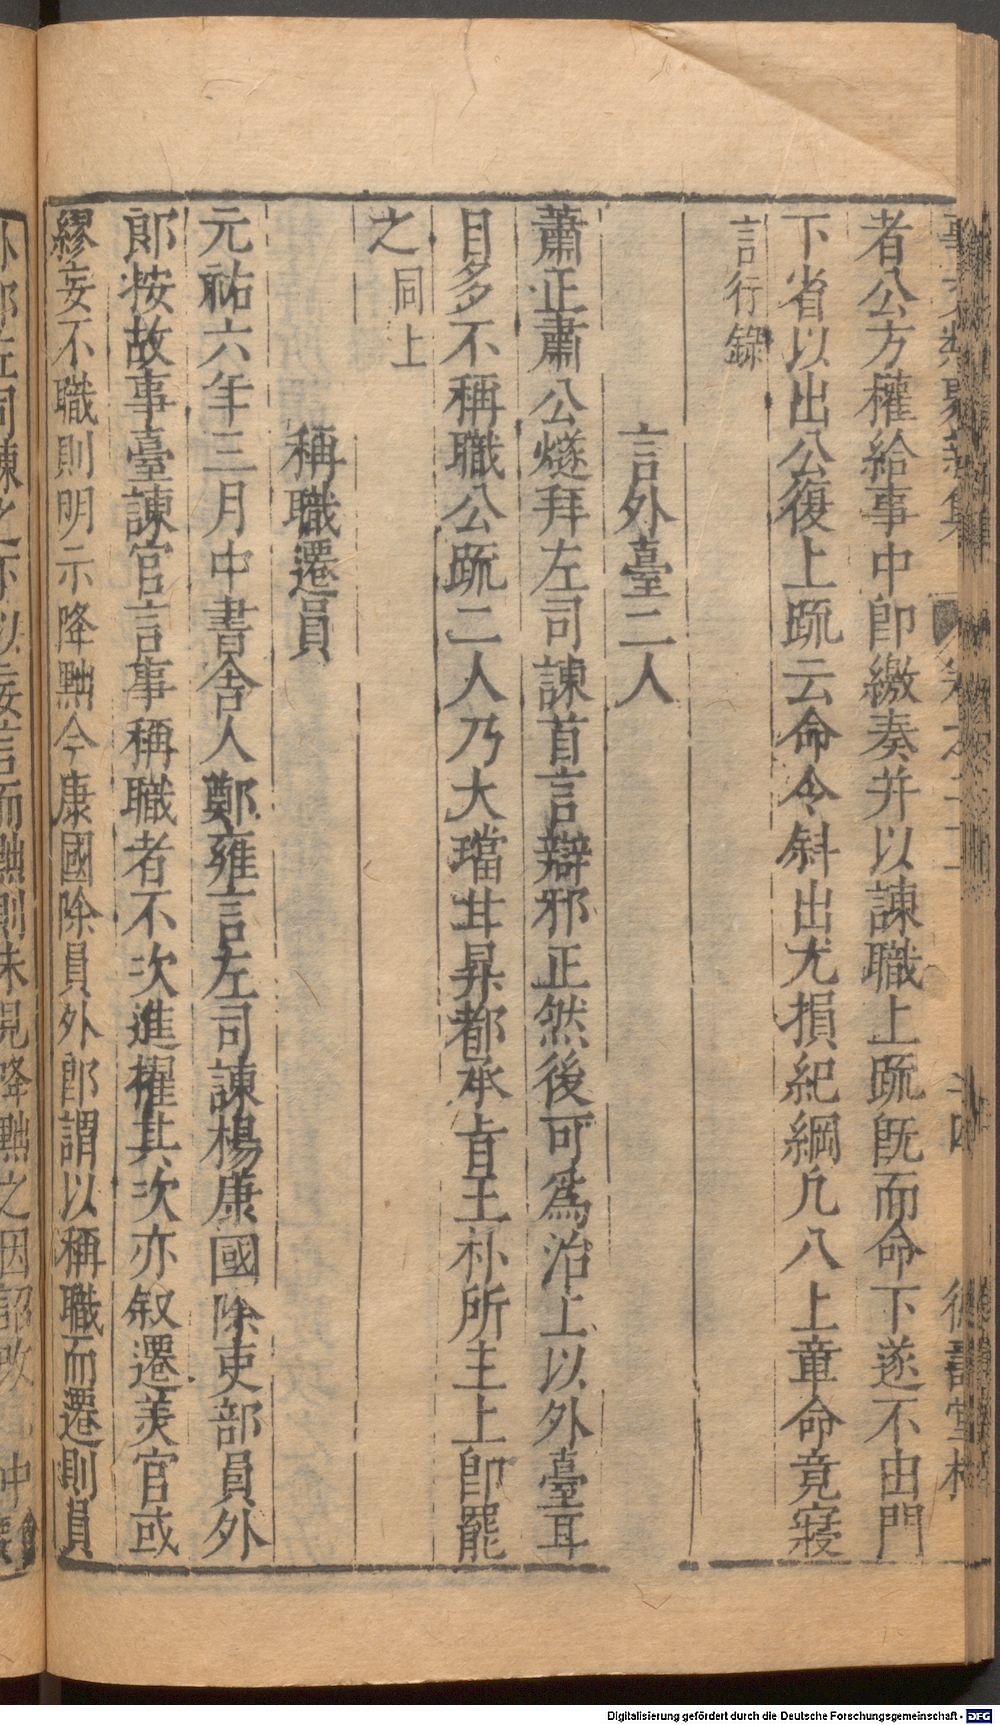 者公方權給事中卽繳奏并以諫職上䟽旣而命下遂不由門
下省以出公復上䟽云命令斜出尤損紀綱凢八上章命竟寢
言行錄
言外臺二人
蕭正肅公燧拜左司諫首言辯邪正然後可爲治上以外臺耳
目多不稱職公䟽二人乃大璫甘昇都承旨王朴所主上卽罷
之同上
稱職遷員
元祐六年三月中書舍人鄭雍言左司諫楊康國除吏部員外
郞按故事臺諫官言事稱職者不次進擢其次亦叙遷美官或
繆妄不職則明示降黜今康國除員外郞謂以稱職而遷則員
Digitalisierung gefördert durch die Deutsche Forschungsgemeinschaft - DFG